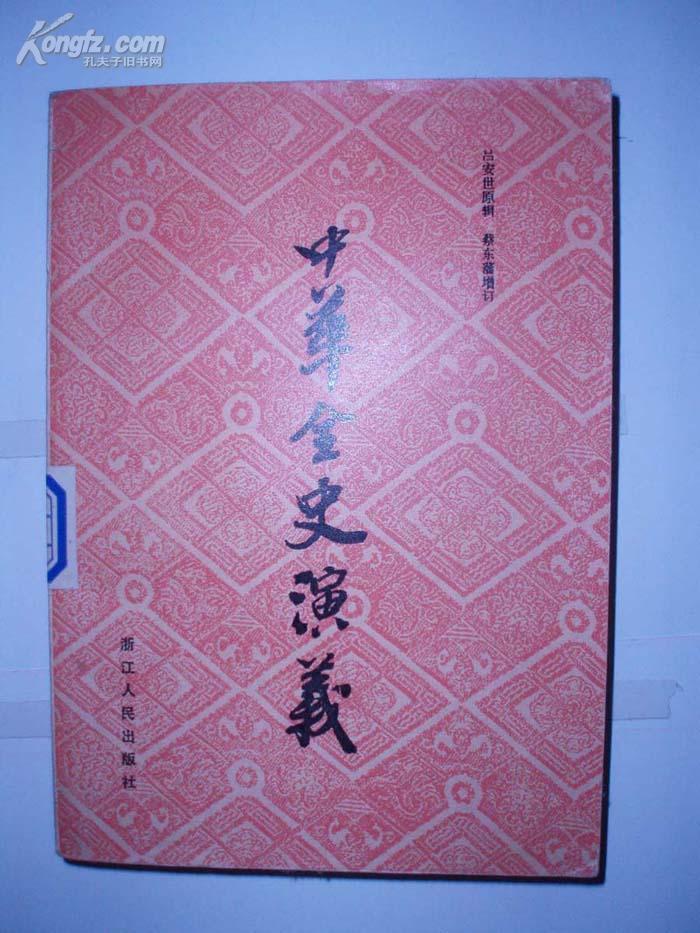 Kongfz.com
孔夫子旧书网
吕安世原辑 蔡东藩增订
中華全史演義
浙江人民出版社